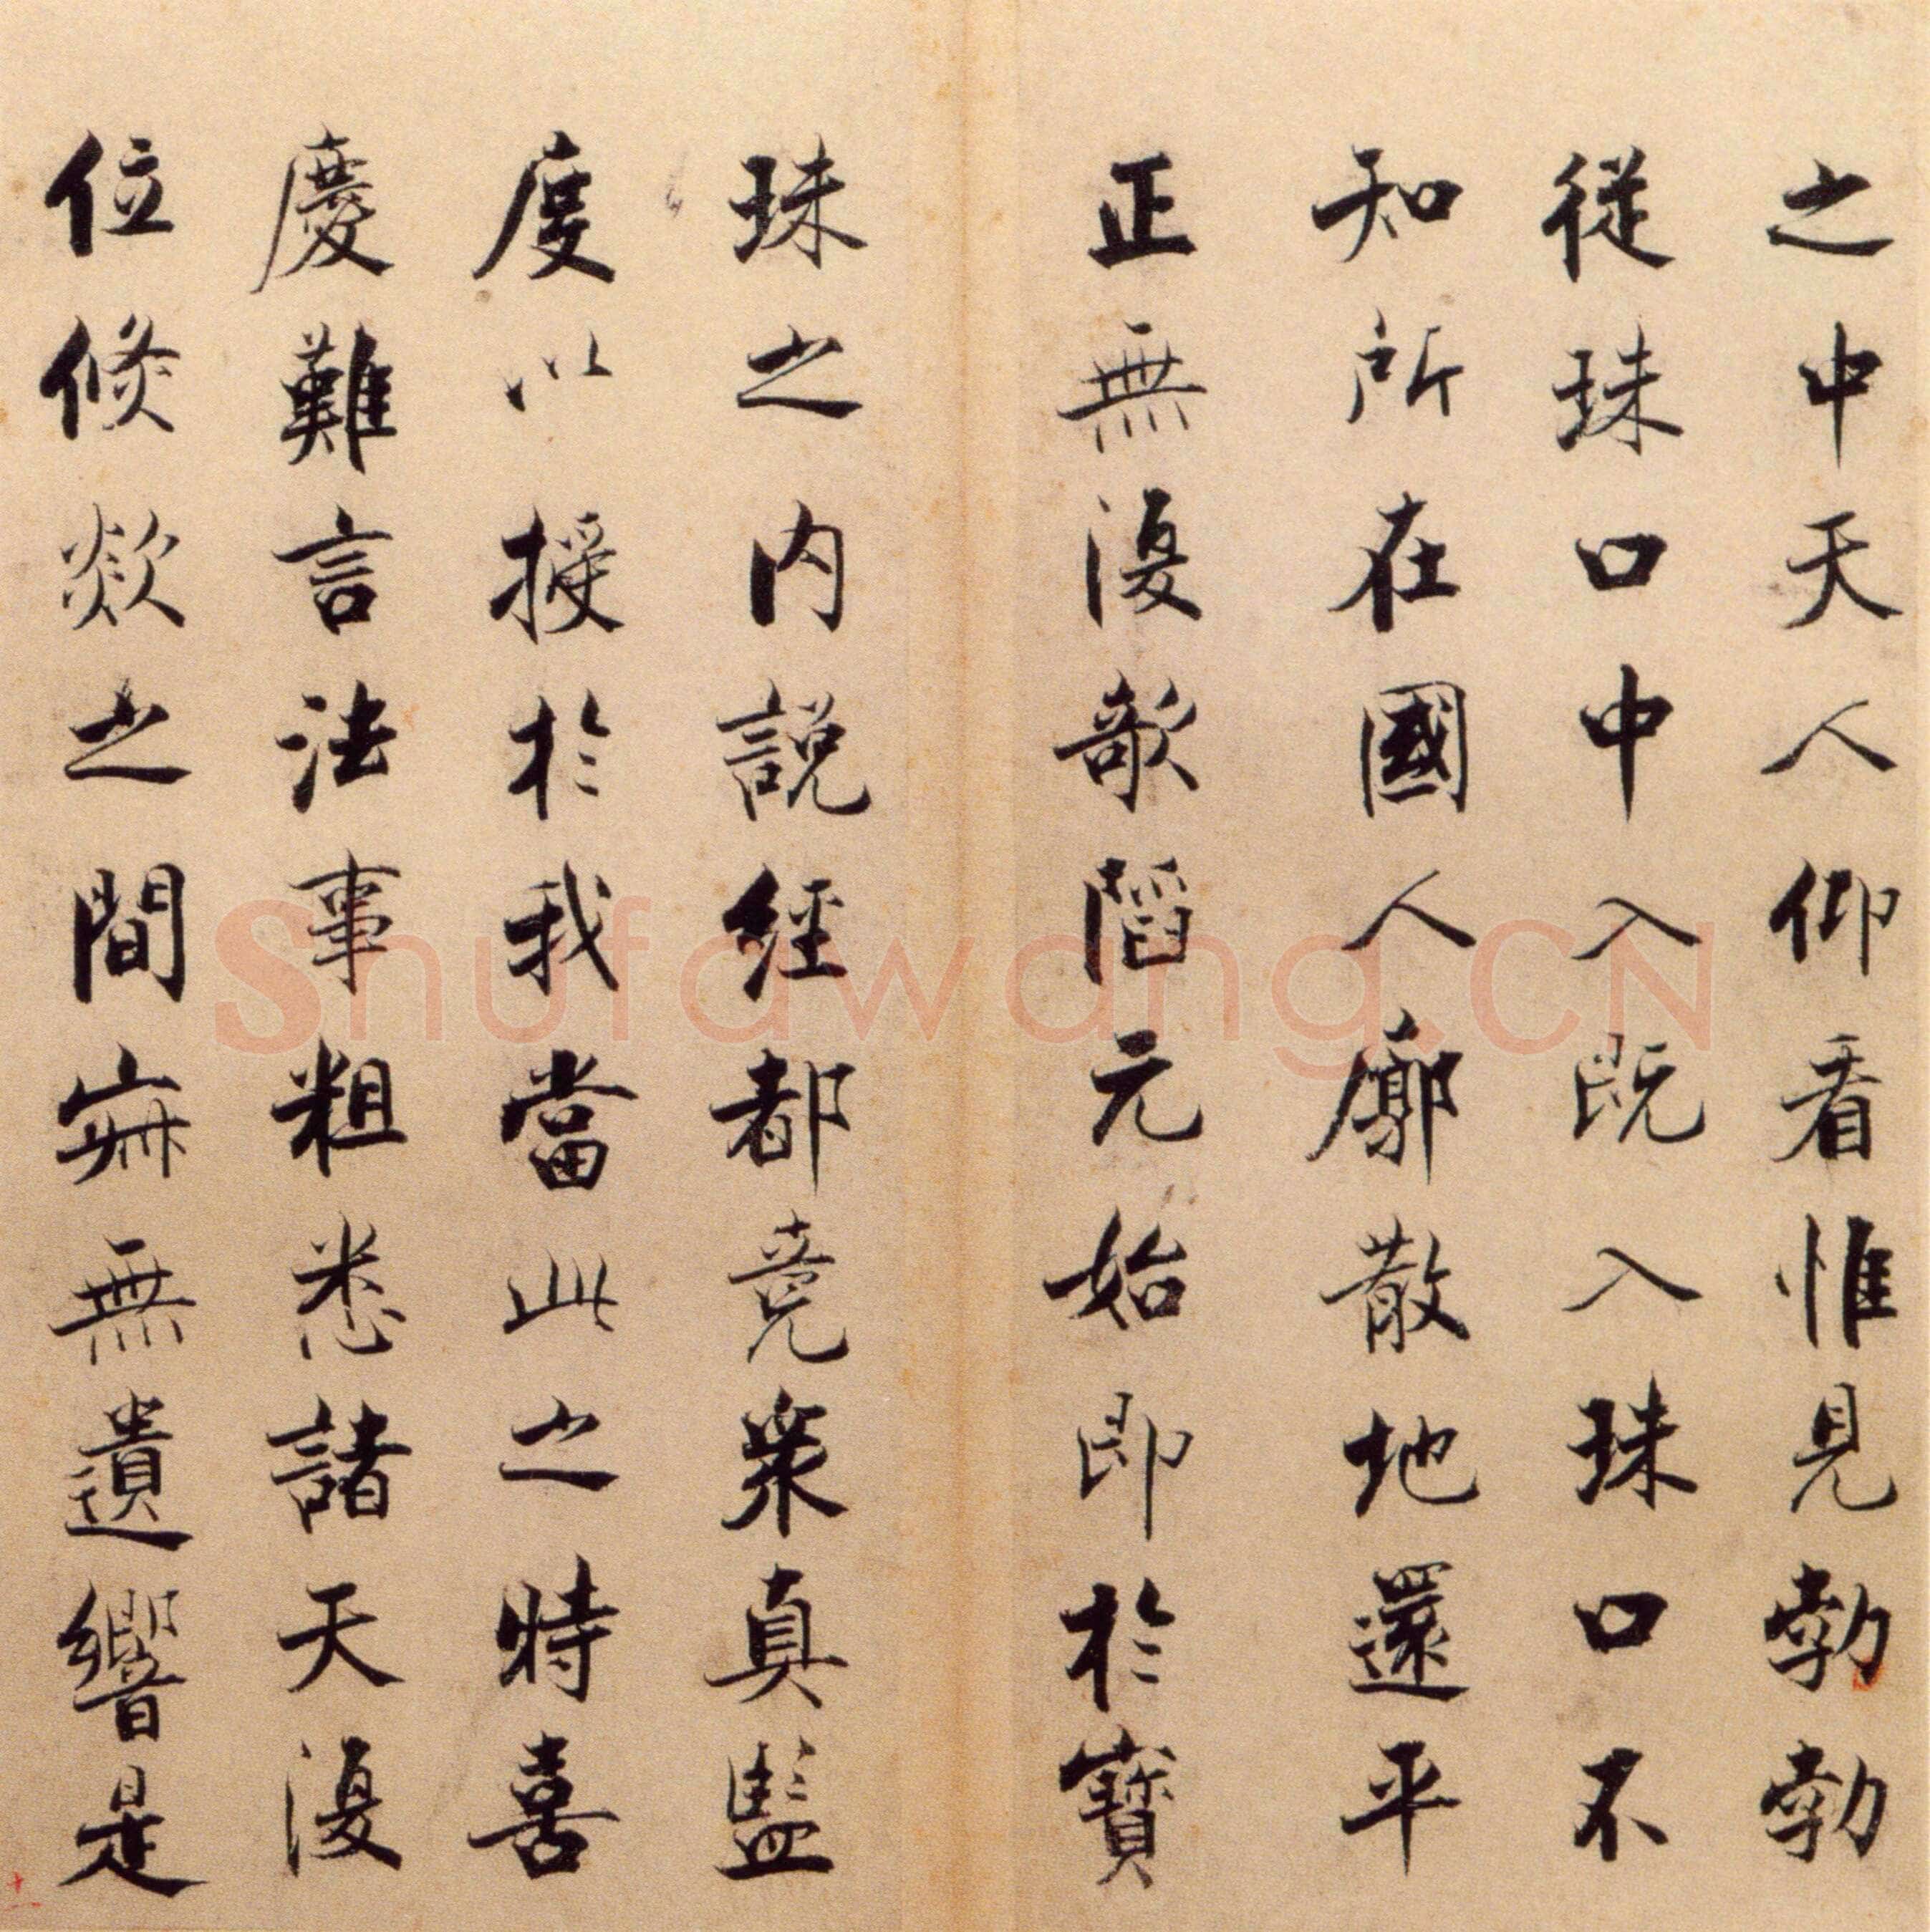 之中天人仰看惟見勃勃
従珠口中入既入珠口不
知所在國人廓散地還平
正無復欹陷元始即於寶
珠之内說經都竟衆真監
度以授於我當此之時喜
慶難言法事粗悉諸天復
位倐欻之間寂無遺響是
十一
Shufawang.CN